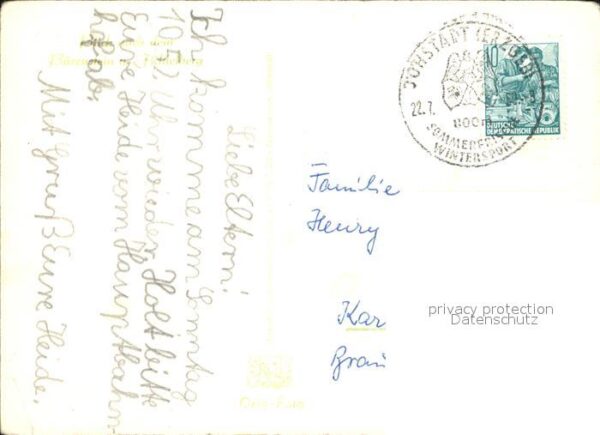 Liebe Eltern!
Ich komme am Sonntag
10.52 Uhr wieder. Holt bitte
Eure Heide vom Hauptbahn-
hof ab.
Mit Gruß Eure Heide.
Familie
Henry
Kar
Brau
JÖHSTADT (ERZGEB)
22.7.
800m
SOMMERFRISCHE
WINTERSPORT
10
DEUTSCHE
DEMOKRATISCHE REPUBLIK
privacy protection
Datenschutz